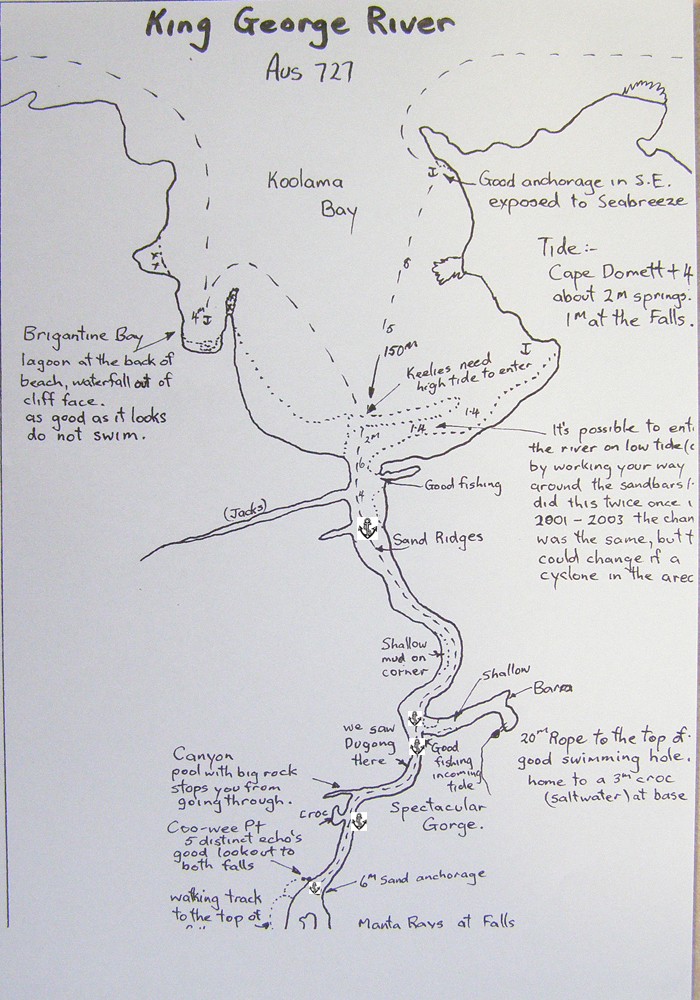 King George River
Aus 727
Koolama
Bay
Good anchorage in S.E.
exposed to Seabreeze
Tide:-
Cape Domett + 4
about 2m springs.
1m at the Falls.
8
4m
1.5
150m
Brigantine Bay
lagoon at the back of
beach, waterfall out of
cliff face.
as good as it looks
do not swim.
Keelies need
high tide to enter
1.4
1.4
2m
6
4
It's possible to
the river on low tide
by working your way
around the sandbars
did this twice once
2001 - 2003 the
was the same, but
could change if a
cyclone in the
Good fishing
(Jacks)
Sand Ridges
Shallow
mud on
corner
Shallow
Barra
we saw
Dugong
there
Good
fishing
incoming
tide
20m Rope to the top of
good swimming hole.
home to a 3m croc
(saltwater) at base
Canyon
pool with big rock
stops you from
going through.
Croc
Spectacular
Gorge.
Coo-wee Pt
5 distinct echo's
good lookout to
both falls
6m Sand anchorage
walking track
to the top of
Manta Rays at Falls